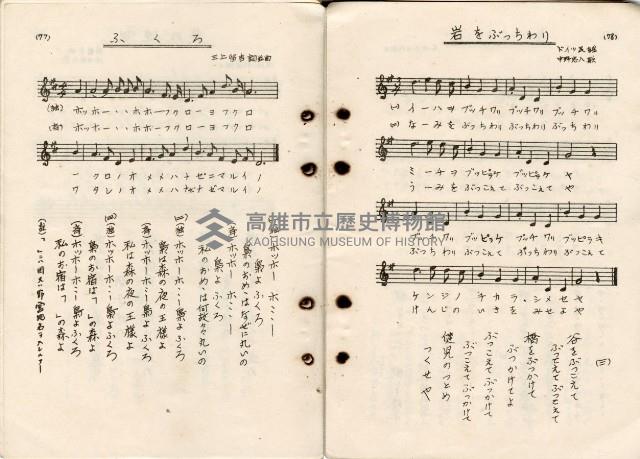 (77)
ふくろ
(独) ホッホー・・ホホーフクローヨフクロ
(斉) ホッホー・・ホホーフクローヨフクロ
ークロノオメメハナゼニマルイノ
ワタシノオメメハナゼナゼマルイノ
高雄市立歷史博物館
KAOHSIUNG MUSEUM OF HISTORY
梟よふくろ
梟のお目はなぜに丸いの
梟よふくろ
私のおめゝは何故々々丸いの
(四)(独)ホッホーホ・・・梟よふくろ
梟は森の夜の王様よ
(斉)ホッホーホ・・・梟よふくろ
私は森の夜の王様よ
梟のお宿は「」の森よ
(斉)ホッホーホ・・・梟よふくろ
私のお宿は「」の森よ
(78)
岩をぶっちわり
ドイツ民謡
(一) イーハヲ ブッチワリ ブッチワリ ブッチワリ
(二) なーみを ぶっちわり ぶっちわり ぶっちわり
ミーチヲ ブッピラケ ブッピラケ ヤ
うーみを ぶっこえて ぶっこえて や
ブッチワリ ブッピラケ ブッチワリ ブッピラキ
ぶっちわり ぶっこえて ぶっちわり ぶっこえて
ケンジノ チカラ・シメセヤ
けんじの いきを みせよや
(三)
谷をぶっこえて
ぶっこえてぶっこえて
橋をぶっかけて
ぶっかけてよ
ぶっこえてぶっかけて
ぶっこえてぶっかけて
健児のつとめ
つくせや